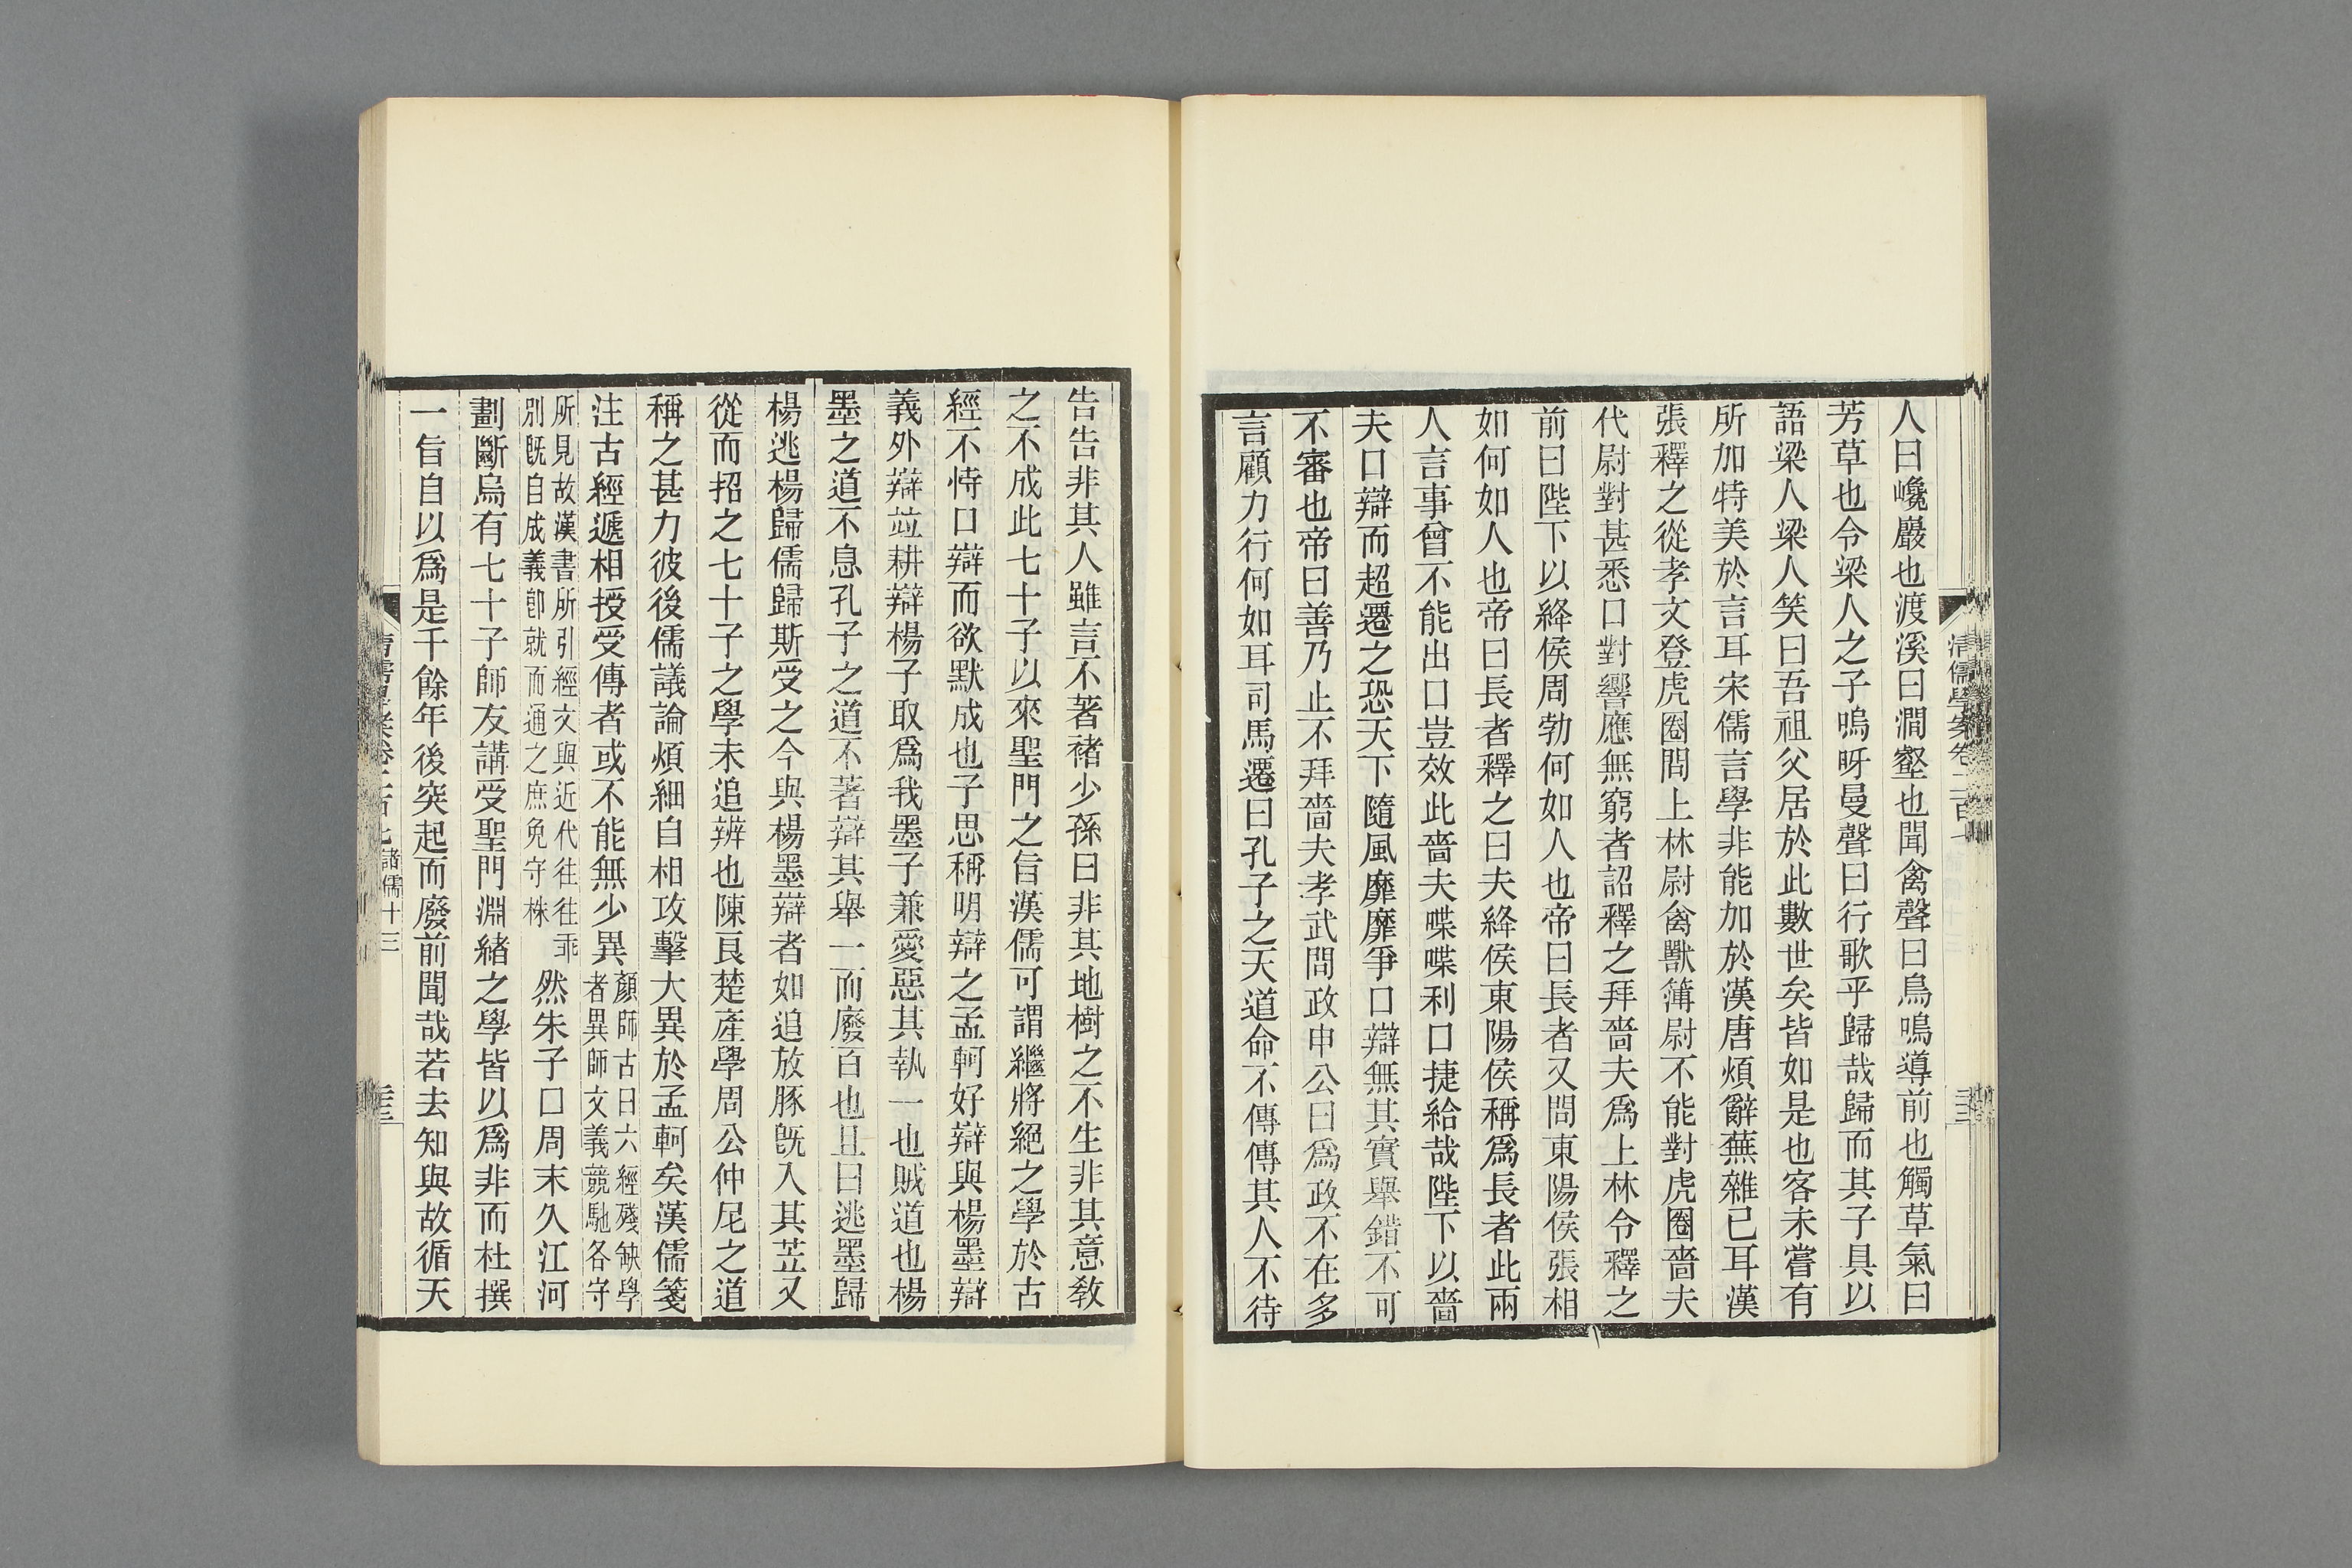 人曰巉巖也渡溪曰澗壑也聞禽聲曰鳥鳴導前也觸草氣曰
芳草也令梁人之子嗚呀曼聲曰行歌乎歸哉歸而其子具以
語梁人梁人笑曰吾祖父居於此數世矣皆如是也客未嘗有
所加特美於言耳宋儒言學非能加於漢唐煩辭蕪雜已耳漢
張釋之從孝文登虎圈問上林尉禽獸簿尉不能對虎圈嗇夫
代尉對甚悉口對響應無窮者詔釋之拜嗇夫爲上林令釋之
前曰陛下以絳侯周勃何如人也帝曰長者又問東陽侯張相
如何如人也帝曰長者釋之曰夫絳侯東陽侯稱爲長者此兩
人言事曾不能出口豈效此嗇夫喋喋利口捷給哉陛下以嗇
夫口辯而超遷之恐天下隨風靡靡爭口辯無其實舉錯不可
不審也帝曰善乃止不拜嗇夫孝武問政申公曰爲政不在多
言顧力行何如耳司馬遷曰孔子之天道命不傳傳其人不待
告告非其人雖言不著褚少孫曰非其地樹之不生非其意敎
之不成此七十子以來聖門之旨漢儒可謂繼將絕之學於古
經不恃口辯而欲默成也子思稱明辯之孟軻好辯與楊墨辯
義外辯竝耕辯楊子取爲我墨子兼愛惡其執一也賊道也楊
墨之道不息孔子之道不著辯其舉一而廢百也且曰逃墨歸
楊逃楊歸儒歸斯受之今與楊墨辯者如追放豚旣入其苙又
從而招之七十子之學未追辨也陳良楚產學周公仲尼之道
稱之甚力彼後儒議論煩細自相攻擊大異於孟軻矣漢儒箋
注古經遞相授受傳者或不能無少異顏師古曰六經殘缺學者異師文義競馳各守
所見故漢書所引經文與近代往往乖別旣自成義卽就而通之庶免守株然朱子曰周末久江河
劃斷烏有七十子師友講受聖門淵緒之學皆以爲非而杜撰
一旨自以爲是千餘年後突起而廢前聞哉若去知與故循天
清儒學案卷二百七 諸儒十三